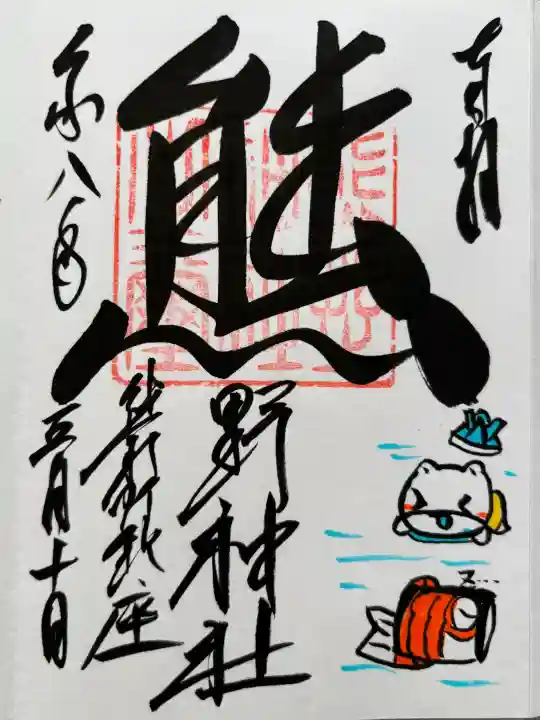 奉拝
熊野神社
熊野町鎮座
令和八年
五月十日